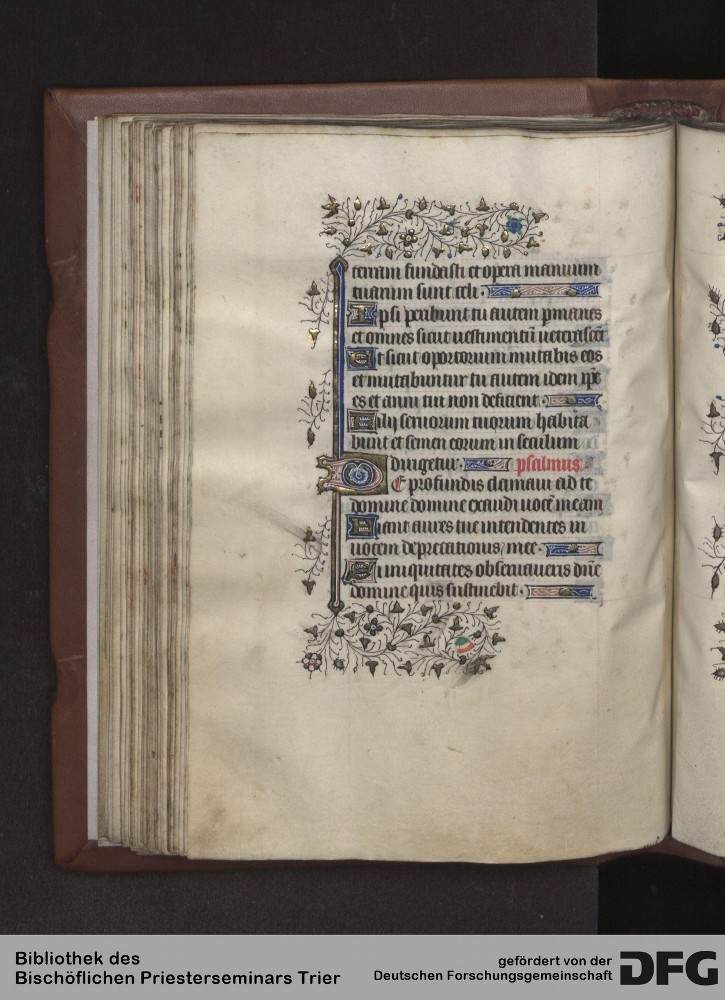 terram fundasti et opera manuum
tuarum sunt celi.
Ipsi peribunt tu autem pmanes
et omnes sicut uestimentū ueterascēt
Et sicut opertorium mutabis eos
et mutabuntur tu autem idem ipē
es et anni tui non deficient.
Filij seruorum tuorum habita
bunt et semen eorum in seculum
dirigetur. psalmus.
De profundis clamaui ad te
domine domine exaudi uocē meam
Fiant aures tue intendentes in
uocem deprecationis mee.
Si iniquitates obseruaueris dn̄e
domine quis sustinebit.
Bibliothek des
Bischöflichen Priesterseminars Trier
gefördert von der
Deutschen Forschungsgemeinschaft
DFG